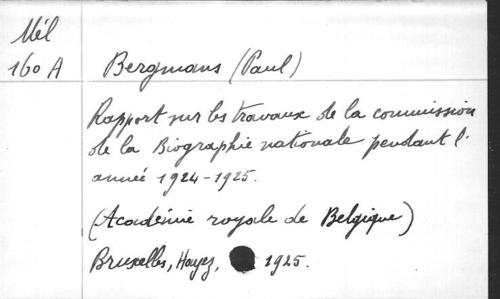 Mél
160 A
Bergmans (Paul)
Rapport sur les travaux de la commission
de la Biographie nationale pendant l'
année 1924-1925.
(Académie royale de Belgique)
Bruxelles, Hayez, 1925.